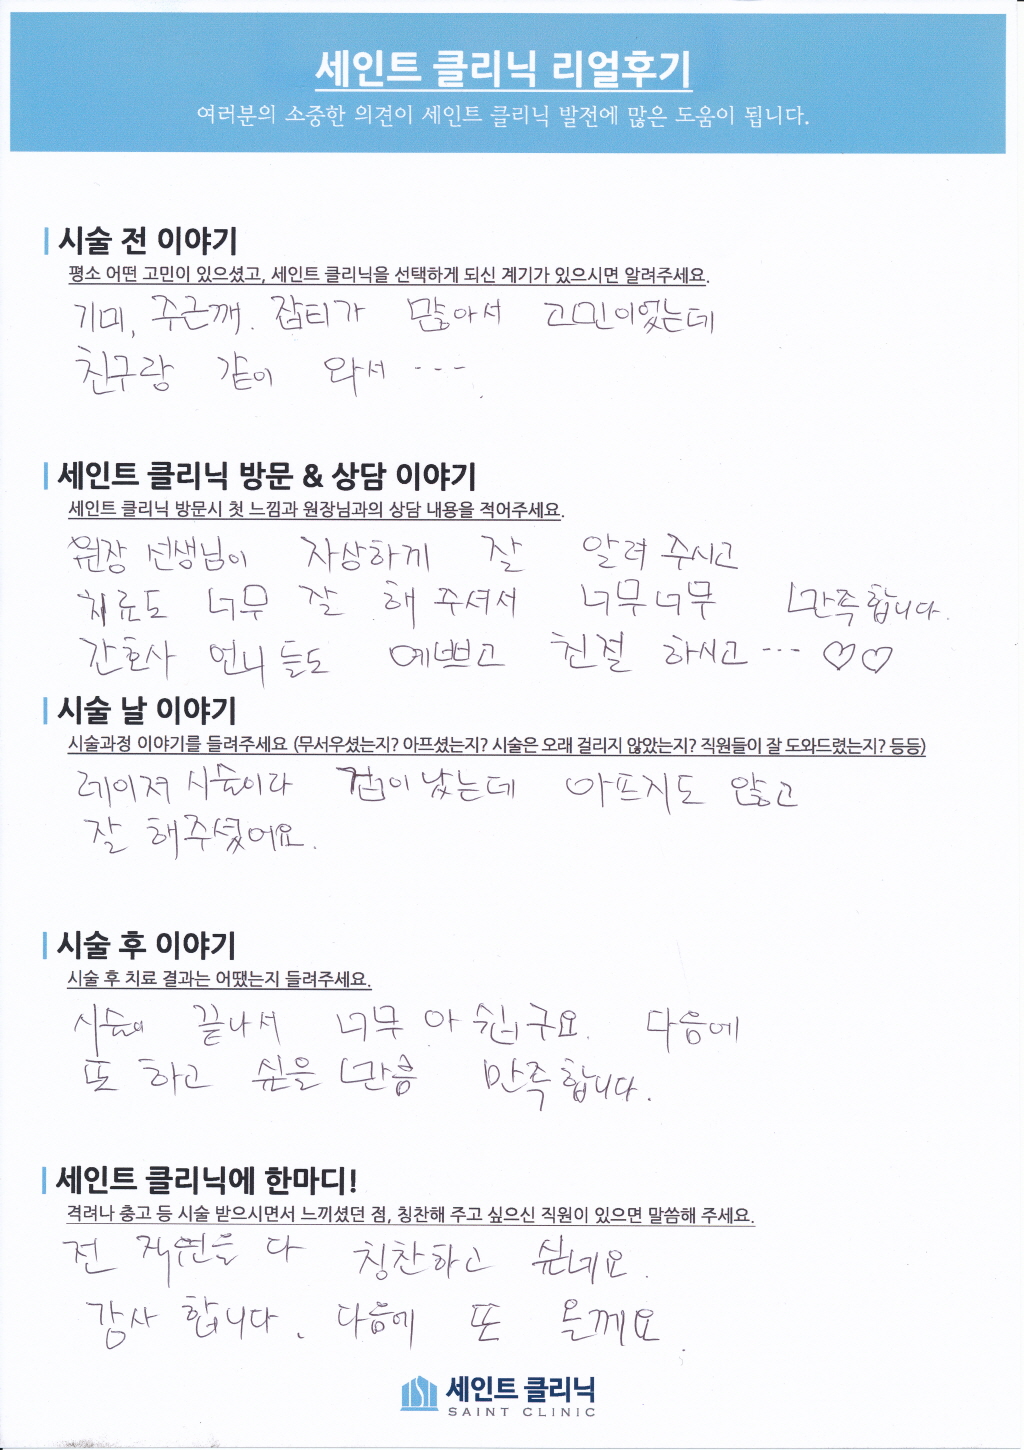 세인트 클리닉 리얼후기
여러분의 소중한 의견이 세인트 클리닉 발전에 많은 도움이 됩니다.
시술 전 이야기
평소 어떤 고민이 있으셨고, 세인트 클리닉을 선택하게 되신 계기가 있으시면 알려주세요.
기미, 주근깨. 잡티가 많아서 고민이었는데
친구랑 같이 와서 ---.
세인트 클리닉 방문 & 상담 이야기
세인트 클리닉 방문시 첫 느낌과 원장님과의 상담 내용을 적어주세요.
원장 선생님이 자상하게 잘 알려 주시고
치료도 너무 잘 해 주셔서 너무너무 만족합니다.
간호사 언니들도 예쁘고 친절 하시고 --- ♡♡
시술 날 이야기
시술과정 이야기를 들려주세요 (무서우셨는지? 아프셨는지? 시술은 오래 걸리지 않았는지? 직원들이 잘 도와드렸는지? 등등)
레이저 시술이라 겁이 났는데 아프지도 않고
잘 해주셨어요.
시술 후 이야기
시술 후 치료 결과는 어땠는지 들려주세요.
시술이 끝나서 너무 아 쉽구요. 다음에
또 하고 싶을 만큼 만족합니다.
세인트 클리닉에 한마디!
격려나 충고 등 시술 받으시면서 느끼셨던 점, 칭찬해 주고 싶으신 직원이 있으면 말씀해 주세요.
전 직원을 다 칭찬하고 싶네요.
감사 합니다. 다음에 또 올께요.
세인트 클리닉
SAINT CLINIC